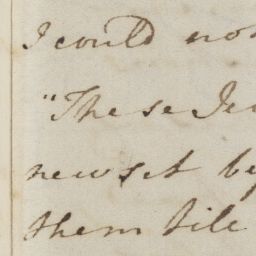 I could no
"These Je
new set be
them tile